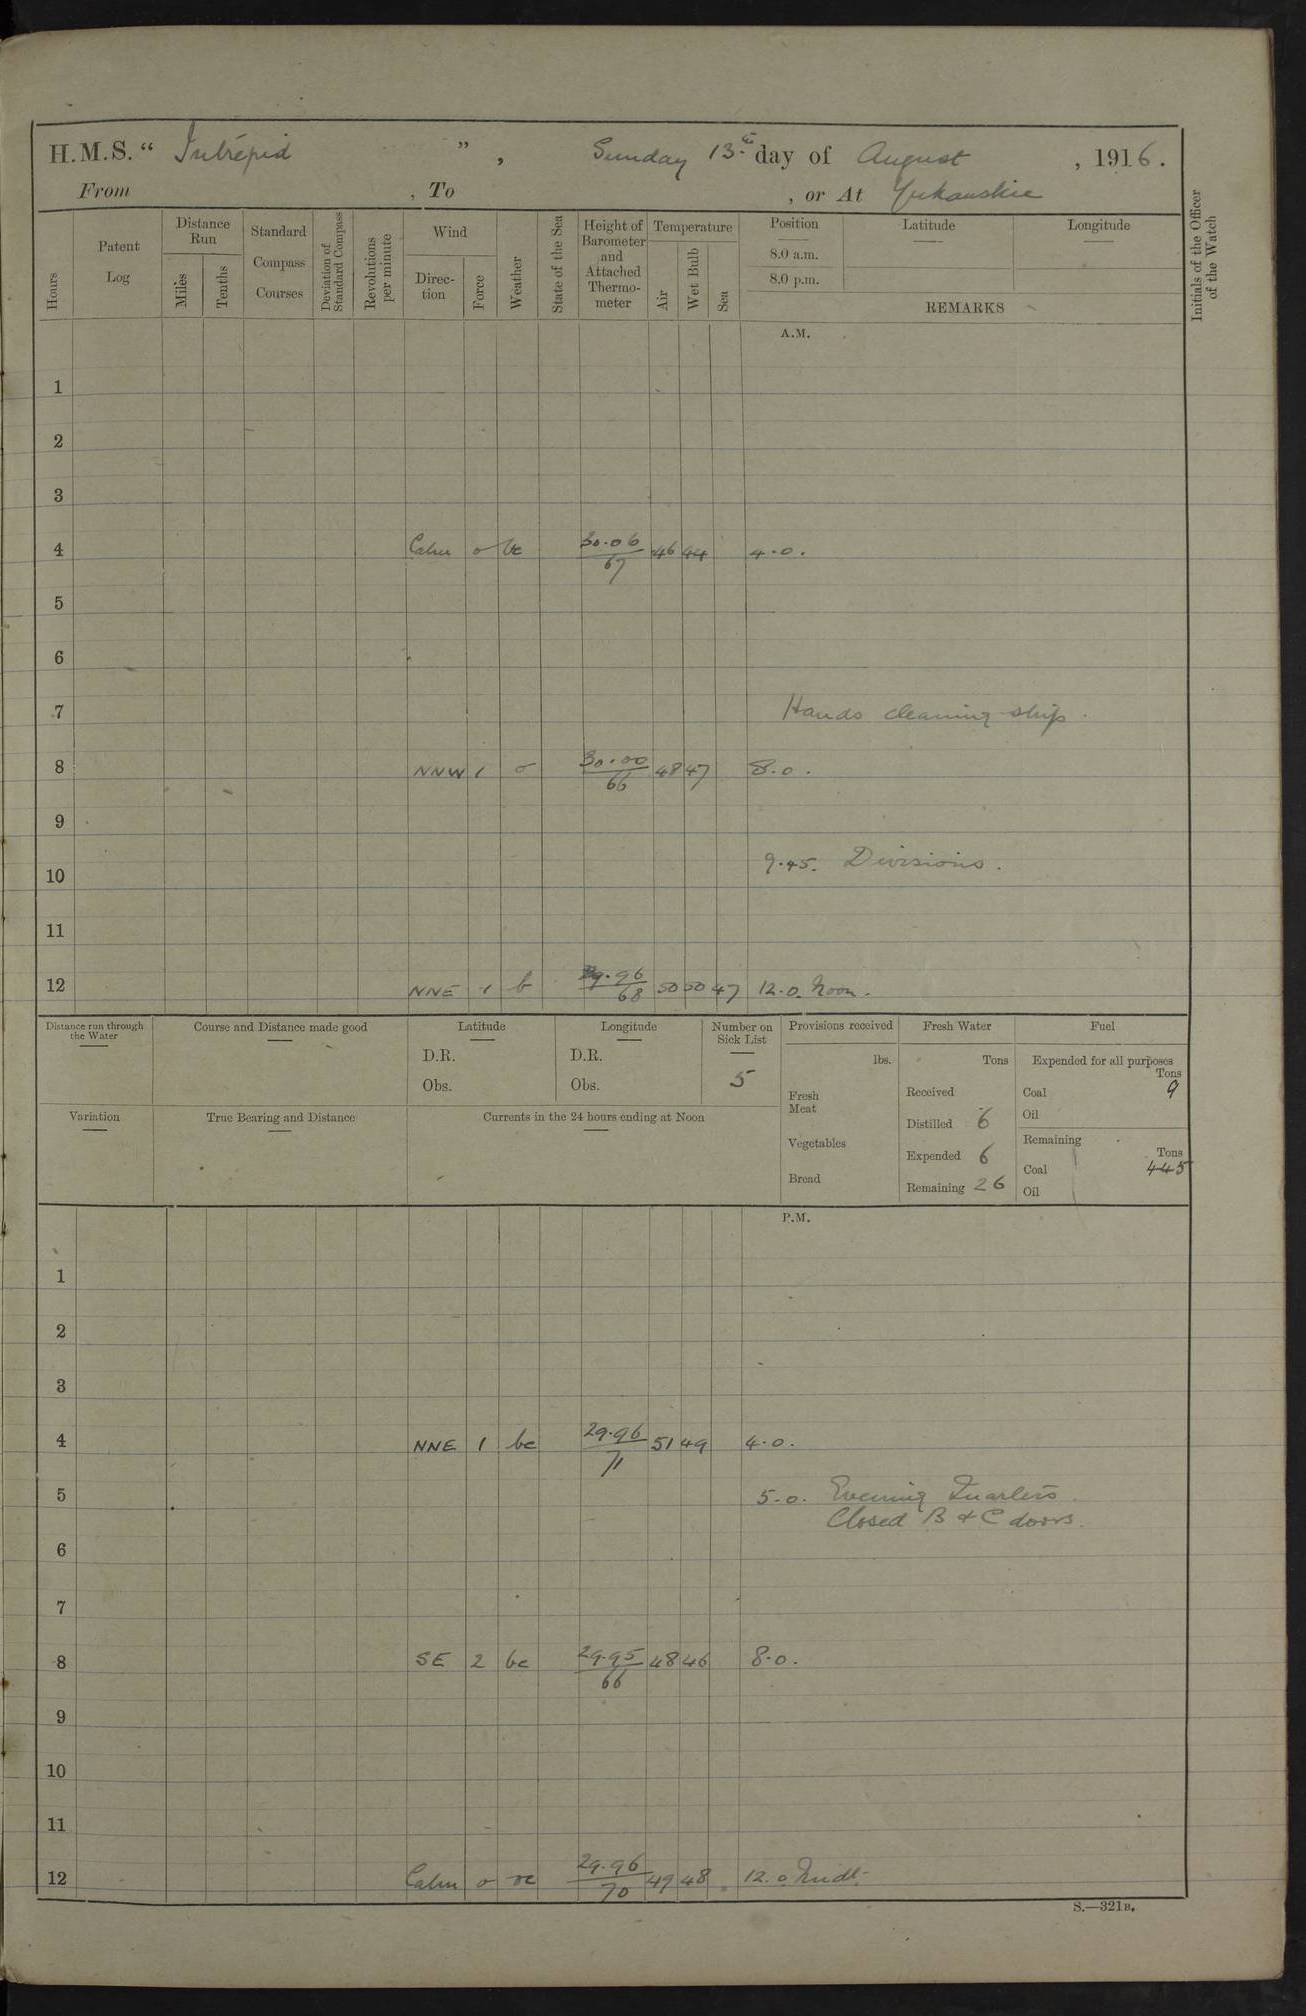 H.M.S. “ Intrepid ” , Sunday 13th day of August , 1916.
From , To , or At Yukanskie
Hours
Patent Log
Distance Run
Miles
Tenths
Standard Compass Courses
Deviation of Standard Compass
Revolutions per minute
Wind
Direc-tion
Force
Weather
State of the Sea
Height of Barometer and Attached Thermo-meter
Temperature
Air
Wet Bulb
Sea
Position
8.0 a.m.
8.0 p.m.
Latitude
Longitude
REMARKS
Initials of the Officer of the Watch
A.M.
1
2
3
4 Calm 0 bc 30.06/67 46 44 4.0.
5
6
7 Hands cleaning ship.
8 NNW 1 o 30.00/66 48 47 8.0.
9
9.45. Divisions.
10
11
12 NNE 1 b 29.96/68 50 50 47 12.0. Noon.
Distance run through the Water
Course and Distance made good
Latitude
D.R.
Obs.
Longitude
D.R.
Obs.
Number on Sick List
5
Variation
True Bearing and Distance
Currents in the 24 hours ending at Noon
Provisions received
lbs.
Fresh Meat
Vegetables
Bread
Fresh Water
Tons
Received
Distilled 6
Expended 6
Remaining 26
Fuel
Expended for all purposes
Tons
Coal 9
Oil
Remaining
Tons
Coal 445
Oil
P.M.
1
2
3
4 NNE 1 bc 29.96/71 51 49 4.0.
5 5.0. Evening Quarters.
Closed B & C doors.
6
7
8 SE 2 bc 29.95/66 48 46 8.0.
9
10
11
12 Calm 0 oc 29.96/70 49 48 12.0 Midt.
S.—321B.